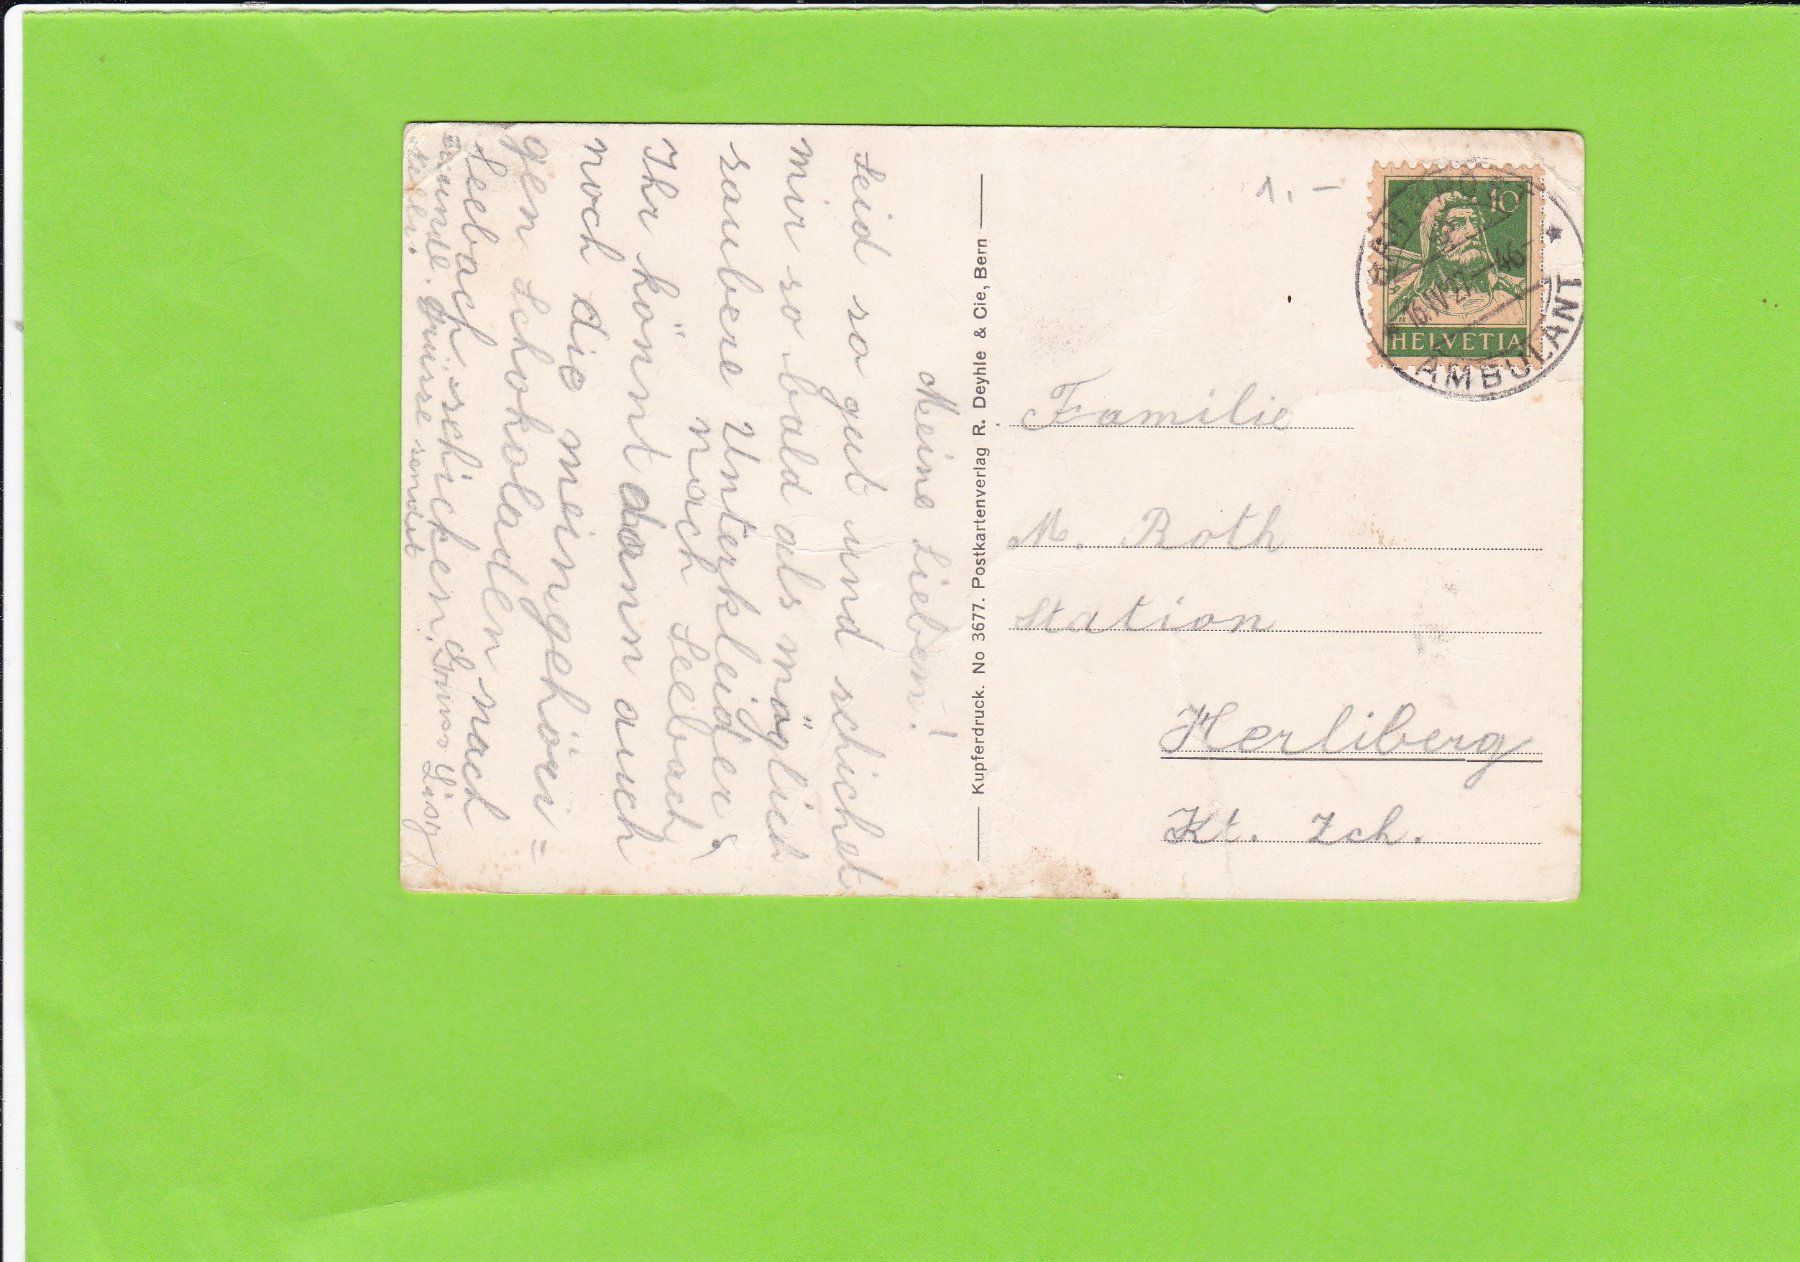 Meine Lieben!
Seid so gut und schicket
mir so bald als möglich
saubere Unterkleider
nach Seebach,
Ihr könnt dann auch
noch die meingehöri=
gen Schokoladen nach
Seebach schicken.
Grüsse sendet
1.-
10
HELVETIA
AMBULANT
16.IV.27.-46
Kupferdruck. No 3677. Postkartenverlag R. Deyhle & Cie, Bern
Familie
M. Roth
Station
Herliberg
Kt. Zch.